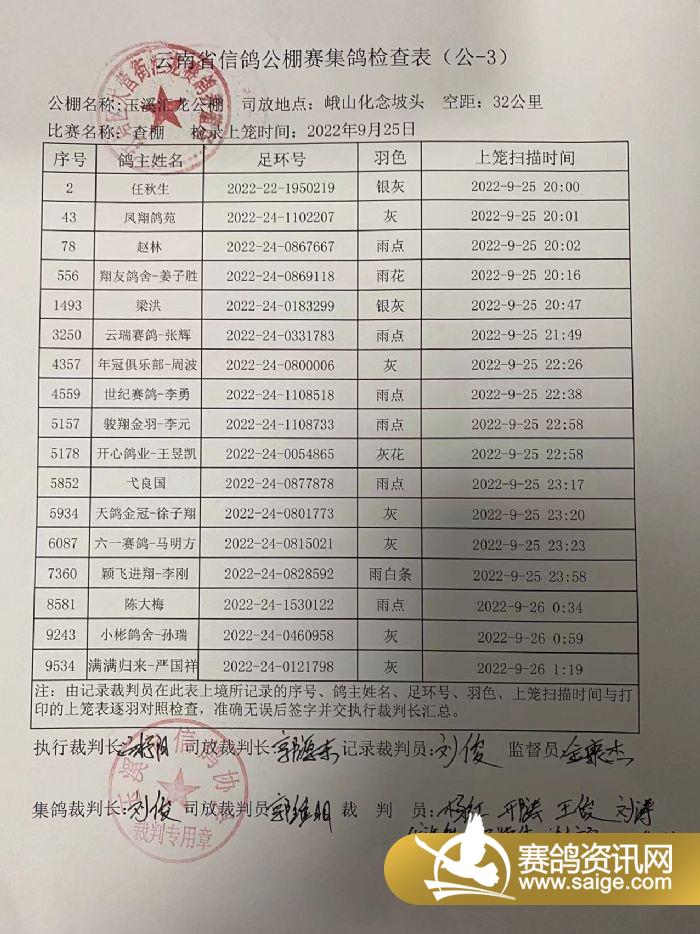 云南省信鸽公棚赛集鸽检查表（公-3）
公棚名称：玉溪汇龙公棚 司放地点：峨山化念坡头 空距：32公里
比赛名称：查棚 检录上笼时间：2022年9月25日
序号 鸽主姓名 足环号 羽色 上笼扫描时间
2 任秋生 2022-22-1950219 银灰 2022-9-25 20:00
43 凤翔鸽苑 2022-24-1102207 灰 2022-9-25 20:01
78 赵林 2022-24-0867667 雨点 2022-9-25 20:02
556 翔友鸽舍-姜子胜 2022-24-0869118 雨花 2022-9-25 20:16
1493 梁洪 2022-24-0183299 银灰 2022-9-25 20:47
3250 云瑞赛鸽-张辉 2022-24-0331783 雨点 2022-9-25 21:49
4357 年冠俱乐部-周波 2022-24-0800006 灰 2022-9-25 22:26
4559 世纪赛鸽-李勇 2022-24-1108518 雨点 2022-9-25 22:38
5157 骏翔金羽-李元 2022-24-1108733 雨点 2022-9-25 22:58
5178 开心鸽业-王昱凯 2022-24-0054865 灰花 2022-9-25 22:58
5852 弋良国 2022-24-0877878 雨点 2022-9-25 23:17
5934 天鸽金冠-徐子翔 2022-24-0801773 灰 2022-9-25 23:20
6087 六一赛鸽-马明方 2022-24-0815021 灰 2022-9-25 23:23
7360 颖飞进翔-李刚 2022-24-0828592 雨白条 2022-9-25 23:58
8581 陈大梅 2022-24-1530122 雨点 2022-9-26 0:34
9243 小彬鸽舍-孙瑞 2022-24-0460958 灰 2022-9-26 0:59
9534 满满归来-严国祥 2022-24-0121798 灰 2022-9-26 1:19
注：由记录裁判员在此表上境所记录的序号、鸽主姓名、足环号、羽色、上笼扫描时间与打
印的上笼表逐羽对照检查，准确无误后签字并交执行裁判长汇总。
执行裁判长 司放裁判长 记录裁判员：刘俊 监督员：
集鸽裁判长：刘俊 司放裁判员： 裁 判 员：杨红 王俊 刘涛
玉溪 信鸽协
裁判专用章
赛鸽资讯网
www.saige.com